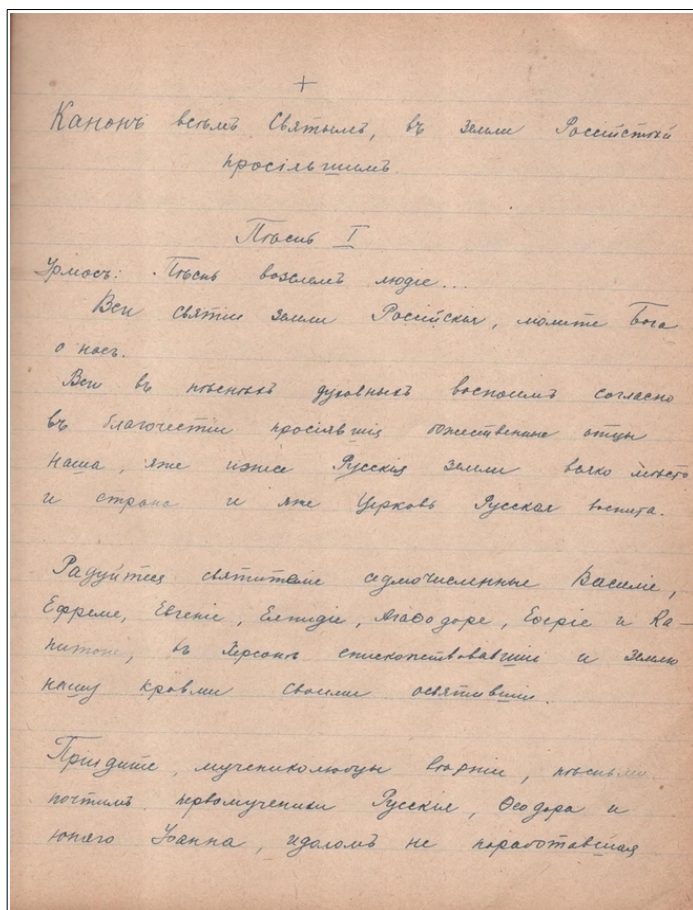 +
Канонъ всѣмъ Святымъ, въ земли Россійстѣй
просіявшимъ.
Пѣснь I
Ирмосъ: Пѣснь возслемъ людіе...
Вси святіи земли Россійскія, молите Бога
о насъ.
Вси въ пѣснехъ духовныхъ воспоимъ согласно
въ благочестіи просіявшія божественныя отцы
наша, яже изнесе Русскія земли всяко мѣсто
и страна и яже Церковь Русская воспита.
Радуйтеся святителіе седмочисленные Василіе,
Ефреме, Евгеніе, Елпидіе, Агаѳодоре, Еѳеріе и Ка-
питоне, въ Херсонѣ епископствовавшіи и землю
нашу кровьми своими освятившіи.
Пріидите, мучениколюбцы вѣрніи, пѣсньми
почтимъ первомученики Русскія, Ѳеодора и
юнаго Іоанна, идоломъ не поработавшія